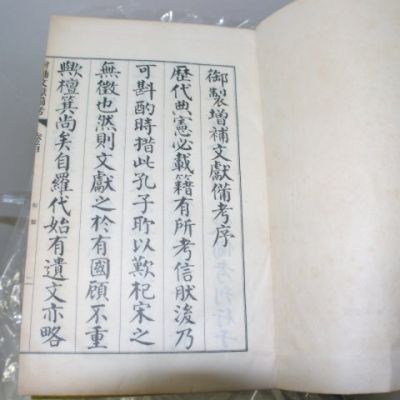 御製增補文獻備考序
歷代典憲必載籍有所考信肰後乃
可斟酌時措此孔子所以歎杞宋之
無徵也然則文獻之於有國顧不重
歟檀箕尚矣自羅代始有遺文亦略
補文獻備考